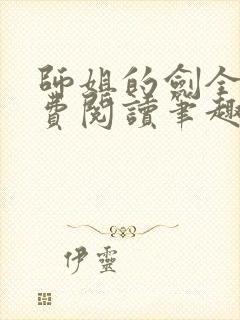 師姐的劍全
費閱讀筆趣
伊靈